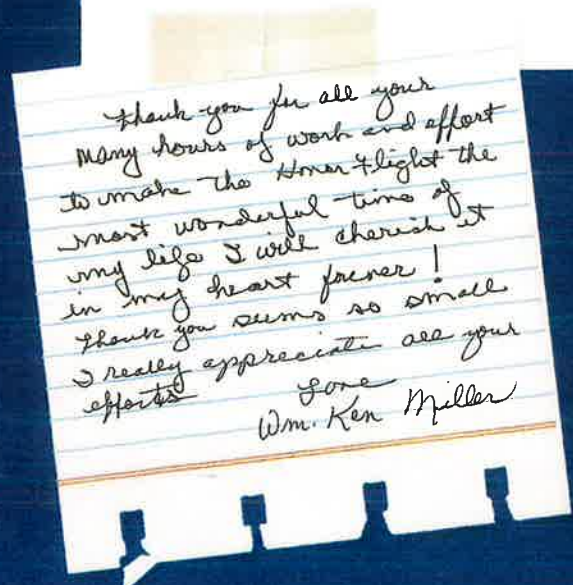 Thank you for all your
many hours of work and effort
to make the Honor Flight the
most wonderful time of
my life I will cherish it
in my heart forever!
Thank you seems so small
I really appreciate all your
efforts
Love
Wm. Ken Miller